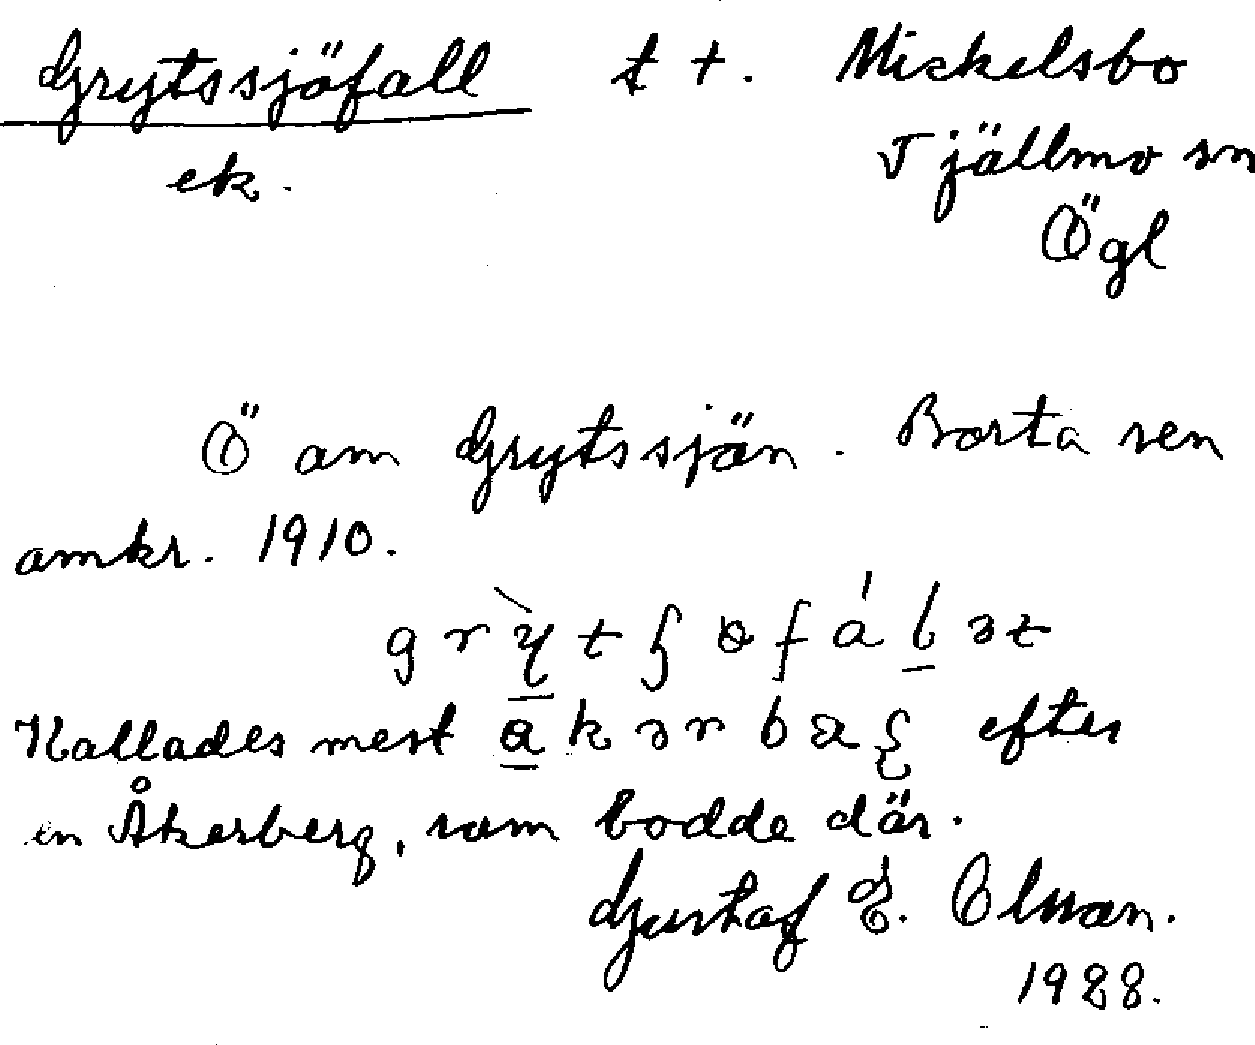 Grytssjöfall t t. Mickelsbo
ek. Tjällmo sn
Ögl
Ö om Grytssjön. Borta sen
omkr. 1910.
Kallades mest efter
en Åkerberg, som bodde där.
Gustaf E. Olsson.
1928.